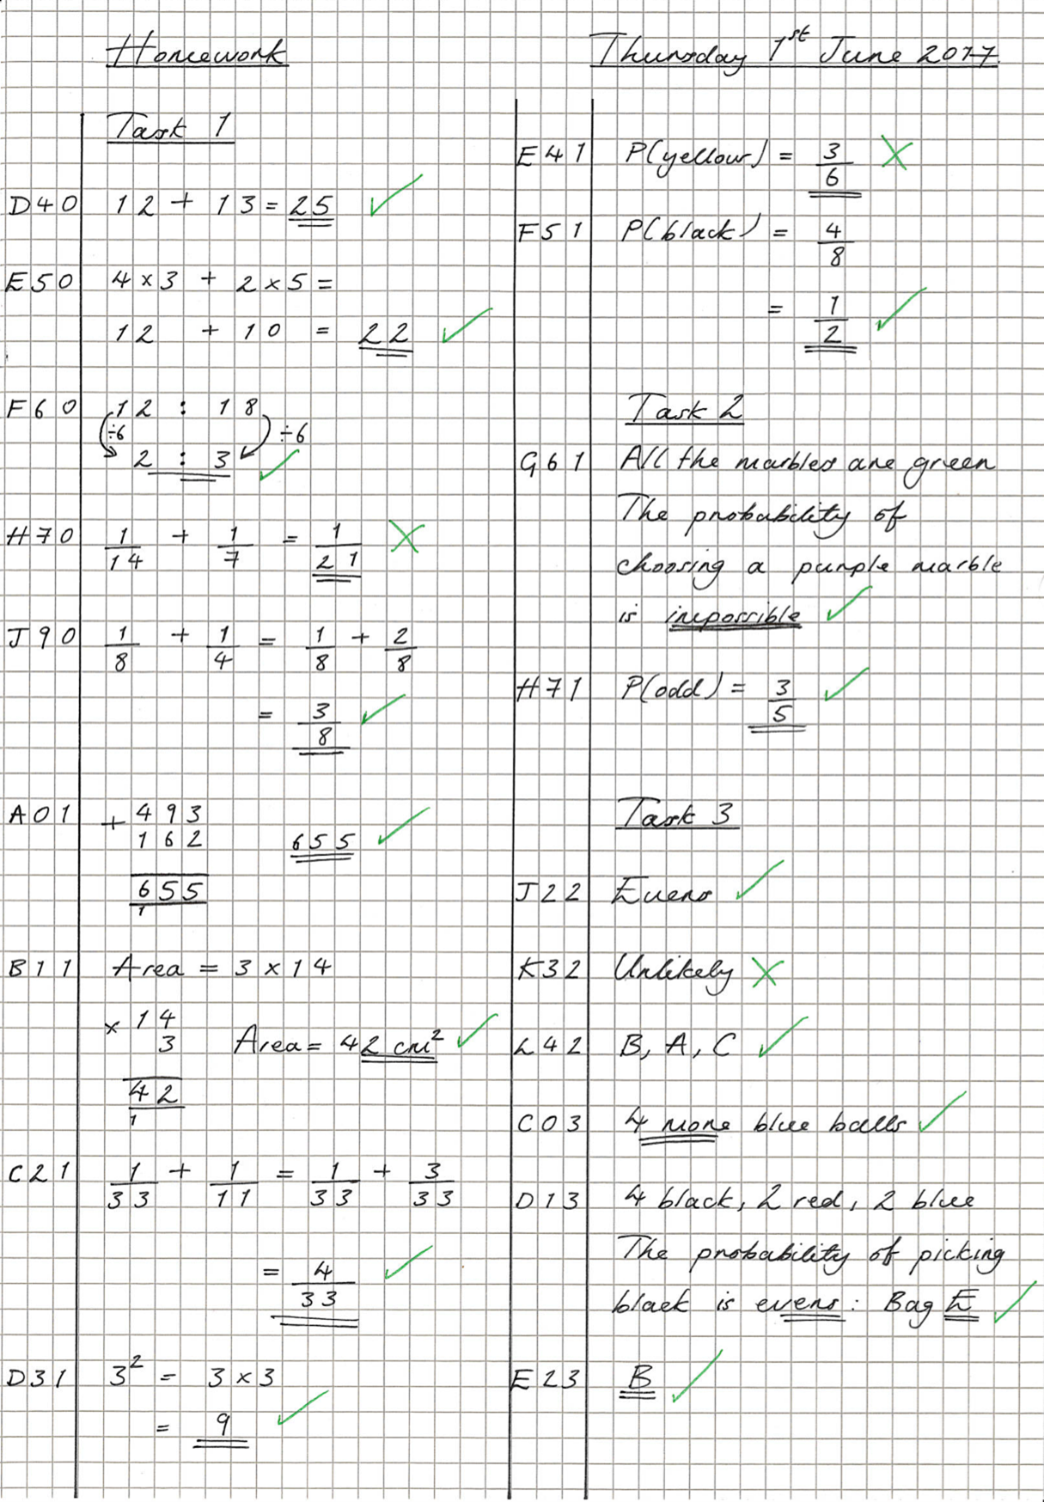 Homework
Thursday 1st June 2017.
Task 1
D40 12 + 13 = 25 ✓
E50 4 × 3 + 2 × 5 =
12 + 10 = 22 ✓
F60 12 : 18
÷6 ÷6
2 : 3 ✓
H70 1/14 + 1/7 = 1/21 X
J90 1/8 + 1/4 = 1/8 + 2/8
= 3/8 ✓
A01 + 493
162 655 ✓
655
1
B11 Area = 3 × 14
× 14
3 Area = 42 cm² ✓
42
1
C21 1/33 + 1/11 = 1/33 + 3/33
= 4/33 ✓
D31 3² = 3 × 3
= 9 ✓
E41 P(yellow) = 3/6 X
F51 P(black) = 4/8
= 1/2 ✓
Task 2
G61 All the marbles are green
The probability of
choosing a purple marble
is impossible ✓
H71 P(odd) = 3/5 ✓
Task 3
J22 Evens ✓
K32 Unlikely X
L42 B, A, C ✓
C03 4 more blue balls ✓
D13 4 black, 2 red, 2 blue
The probability of picking
black is evens: Bag E ✓
E23 B ✓